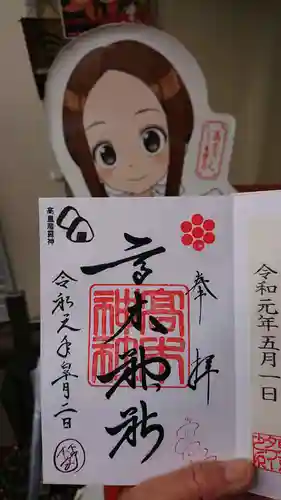 奉拝
高木神社
高皇産霊神
令和元年皐月二日
令和元年五月一日